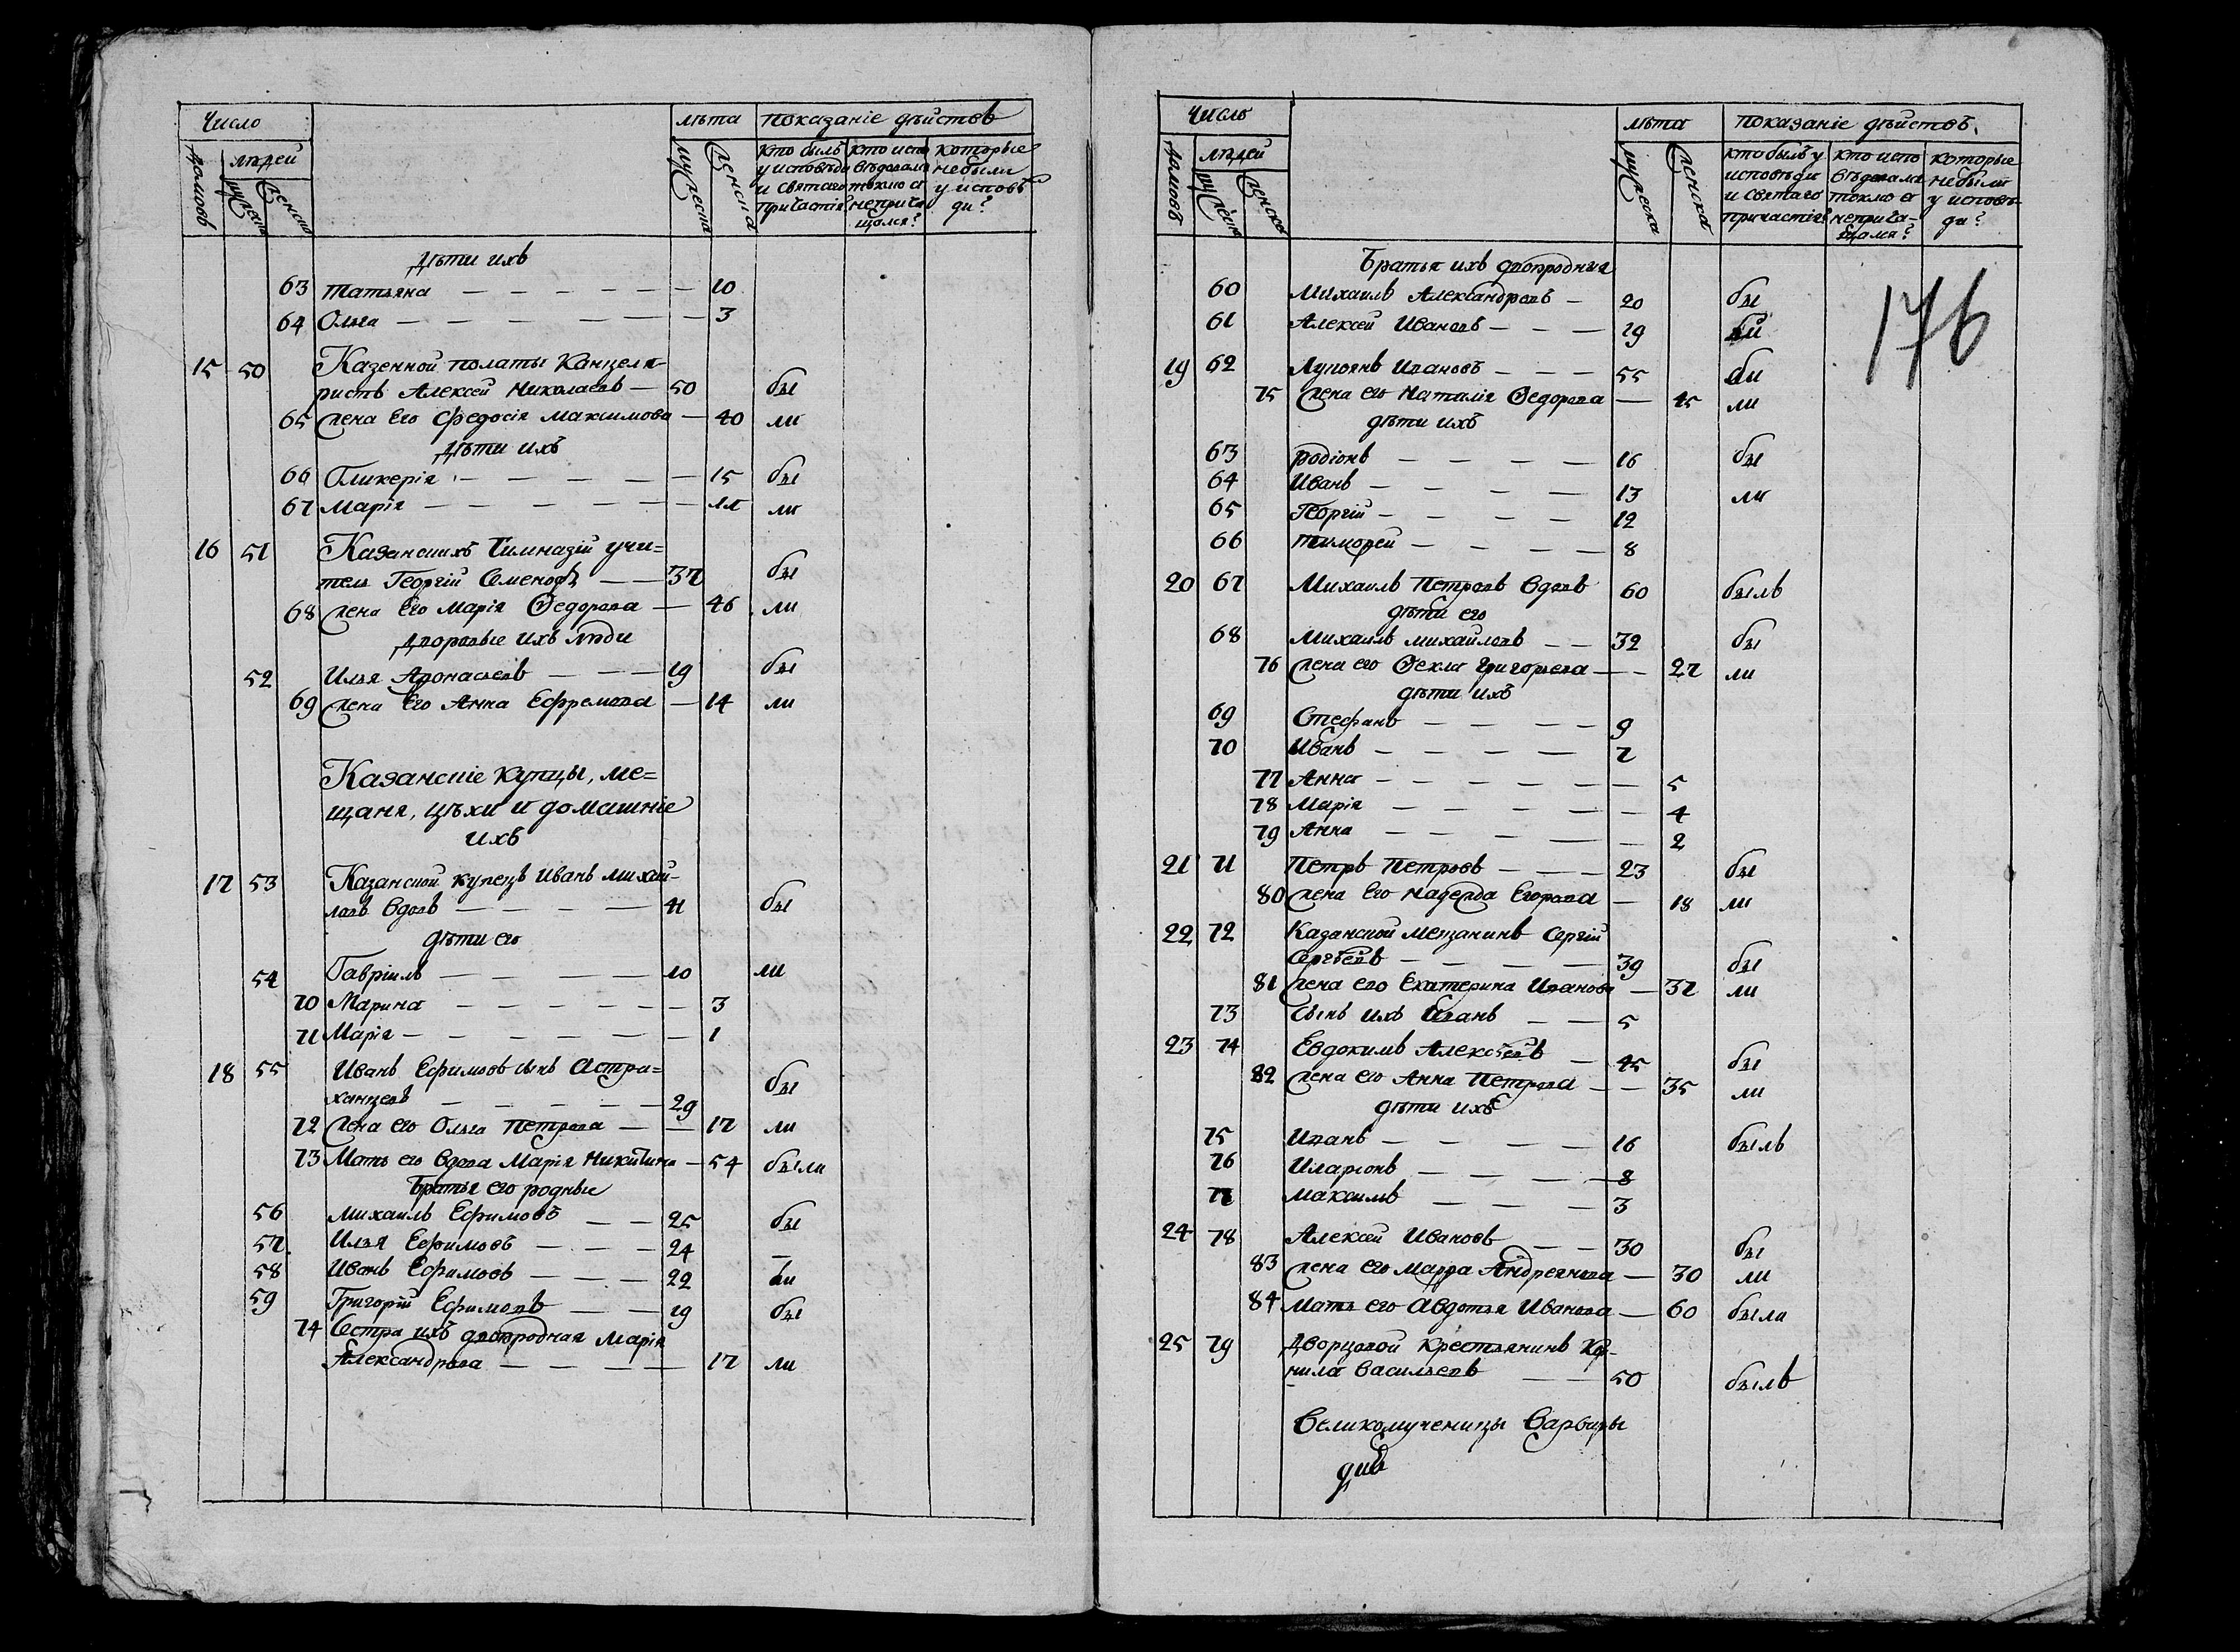 Число
лѣта показаніе дѣйствъ
домовъ людей
мужеска женска
мужеска женска
кто былъ у исповѣди и святаго причастія
кто исповѣдовался токмо а непричащался?
которые небыли у исповѣди?
Дѣти ихъ
63 Татьяна — 10
64 Ольга — 3
15 50 Казенной полаты Канцеля-
ристъ Алексей Николаевъ — 50 бы
65 жена Его Федосія Максимова — 40 ли
Дѣти ихъ
66 Гликерія — 15 бы
67 Марія — 11 ли
16 51 Казанскихъ Гимназій учи=
тель Георгій Семеновъ — 37 бы
68 жена Его Марія Ѳедорова — 46 ли
Дворовые ихъ люди
52 Илья Афонасьевъ — 19 бы
69 жена Его Анна Ефремова — 14 ли
Казанскіе купцы, ме=
щаня, цѣхи и домашніе
ихъ
17 53 Казанской купецъ Иванъ Михай-
ловъ вдовъ — 41 бы
дѣти его
54 Гавріилъ — 10 ли
70 Марина — 3
71 Марія — 1
18 55 Иванъ Ефимовъ сынъ Астра=
ханцевъ — 29 бы
72 жена его Ольга Петрова — 17 ли
73 Мать его вдова Марія Никитина — 54 была
Братья его родные
56 Михаилъ Ефимовъ — 25 бы
57 Илья Ефимовъ — 24 —
58 Иванъ Ефимовъ — 22 ли
59 Григорій Ефимовъ — 19 бы
74 Сестра ихъ двоюродная Марія
Александрова — 17 ли
Число
лѣта показаніе дѣйствъ
домовъ людей
мужеска женска
мужеска женска
кто былъ у исповѣди и святаго причастія?
кто исповѣдовался токмо а непричащался?
которые небыли у исповѣди?
176
Братья ихъ двоюродныя
60 Михаилъ Александровъ — 20 бы
61 Алексей Ивановъ — 19 ли
19 62 Лупоянъ Ивановъ — 55 бы
75 жена его Наталія Ѳедорова — 45 ли
дѣти ихъ
63 Родіонъ — 16 бы
64 Иванъ — 13 ли
65 Георгій — 12
66 Тимофей — 8
20 67 Михаилъ Петровъ вдовъ 60 былъ
дѣти его
68 Михаилъ Михайловъ — 32 бы
76 жена его Ѳекла Григорьева — 27 ли
дѣти ихъ
69 Стефанъ — 9
70 Иванъ — 7
77 Анна — 5
78 Марія — 4
79 Анна — 2
21 71 Петръ Петровъ — 23 бы
80 жена Его Надежда Егорова — 18 ли
22 72 Казанской мещанинъ Сергій
Сергѣевъ — 39 бы
81 жена его Екатерина Иванова — 37 ли
73 Сынъ ихъ Иванъ — 5
23 74 Евдокимъ Алексѣевъ — 45 бы
82 жена его Анна Петрова — 35 ли
дѣти ихъ
75 Иванъ — 16 былъ
76 Иларіонъ — 8
77 Максимъ — 3
24 78 Алексей Ивановъ — 30 бы
83 жена его Марфа Андреянова — 30 ли
84 Мать его Авдотья Иванова — 60 была
25 79 Дворцовой крестьянинъ Кор-
нила Васильевъ — 50 былъ
Великомученицы Варвары